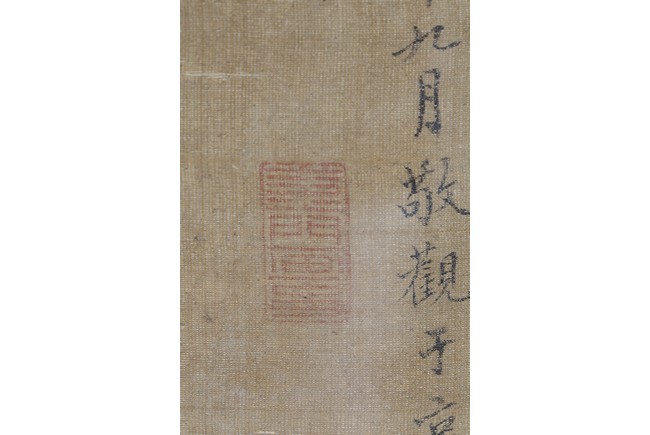 九月敬觀于京